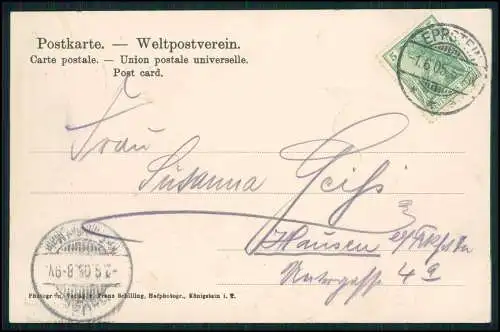 Postkarte. — Weltpostverein.
Carte postale. — Union postale universelle.
Post card.
EPPSTEIN
-1.6.05
Frau
Susanna Geiss
Hausen
Untergasse 4a
8-9V.
Photogr. Franz Schilling, Hofphotogr., Königstein i. T.